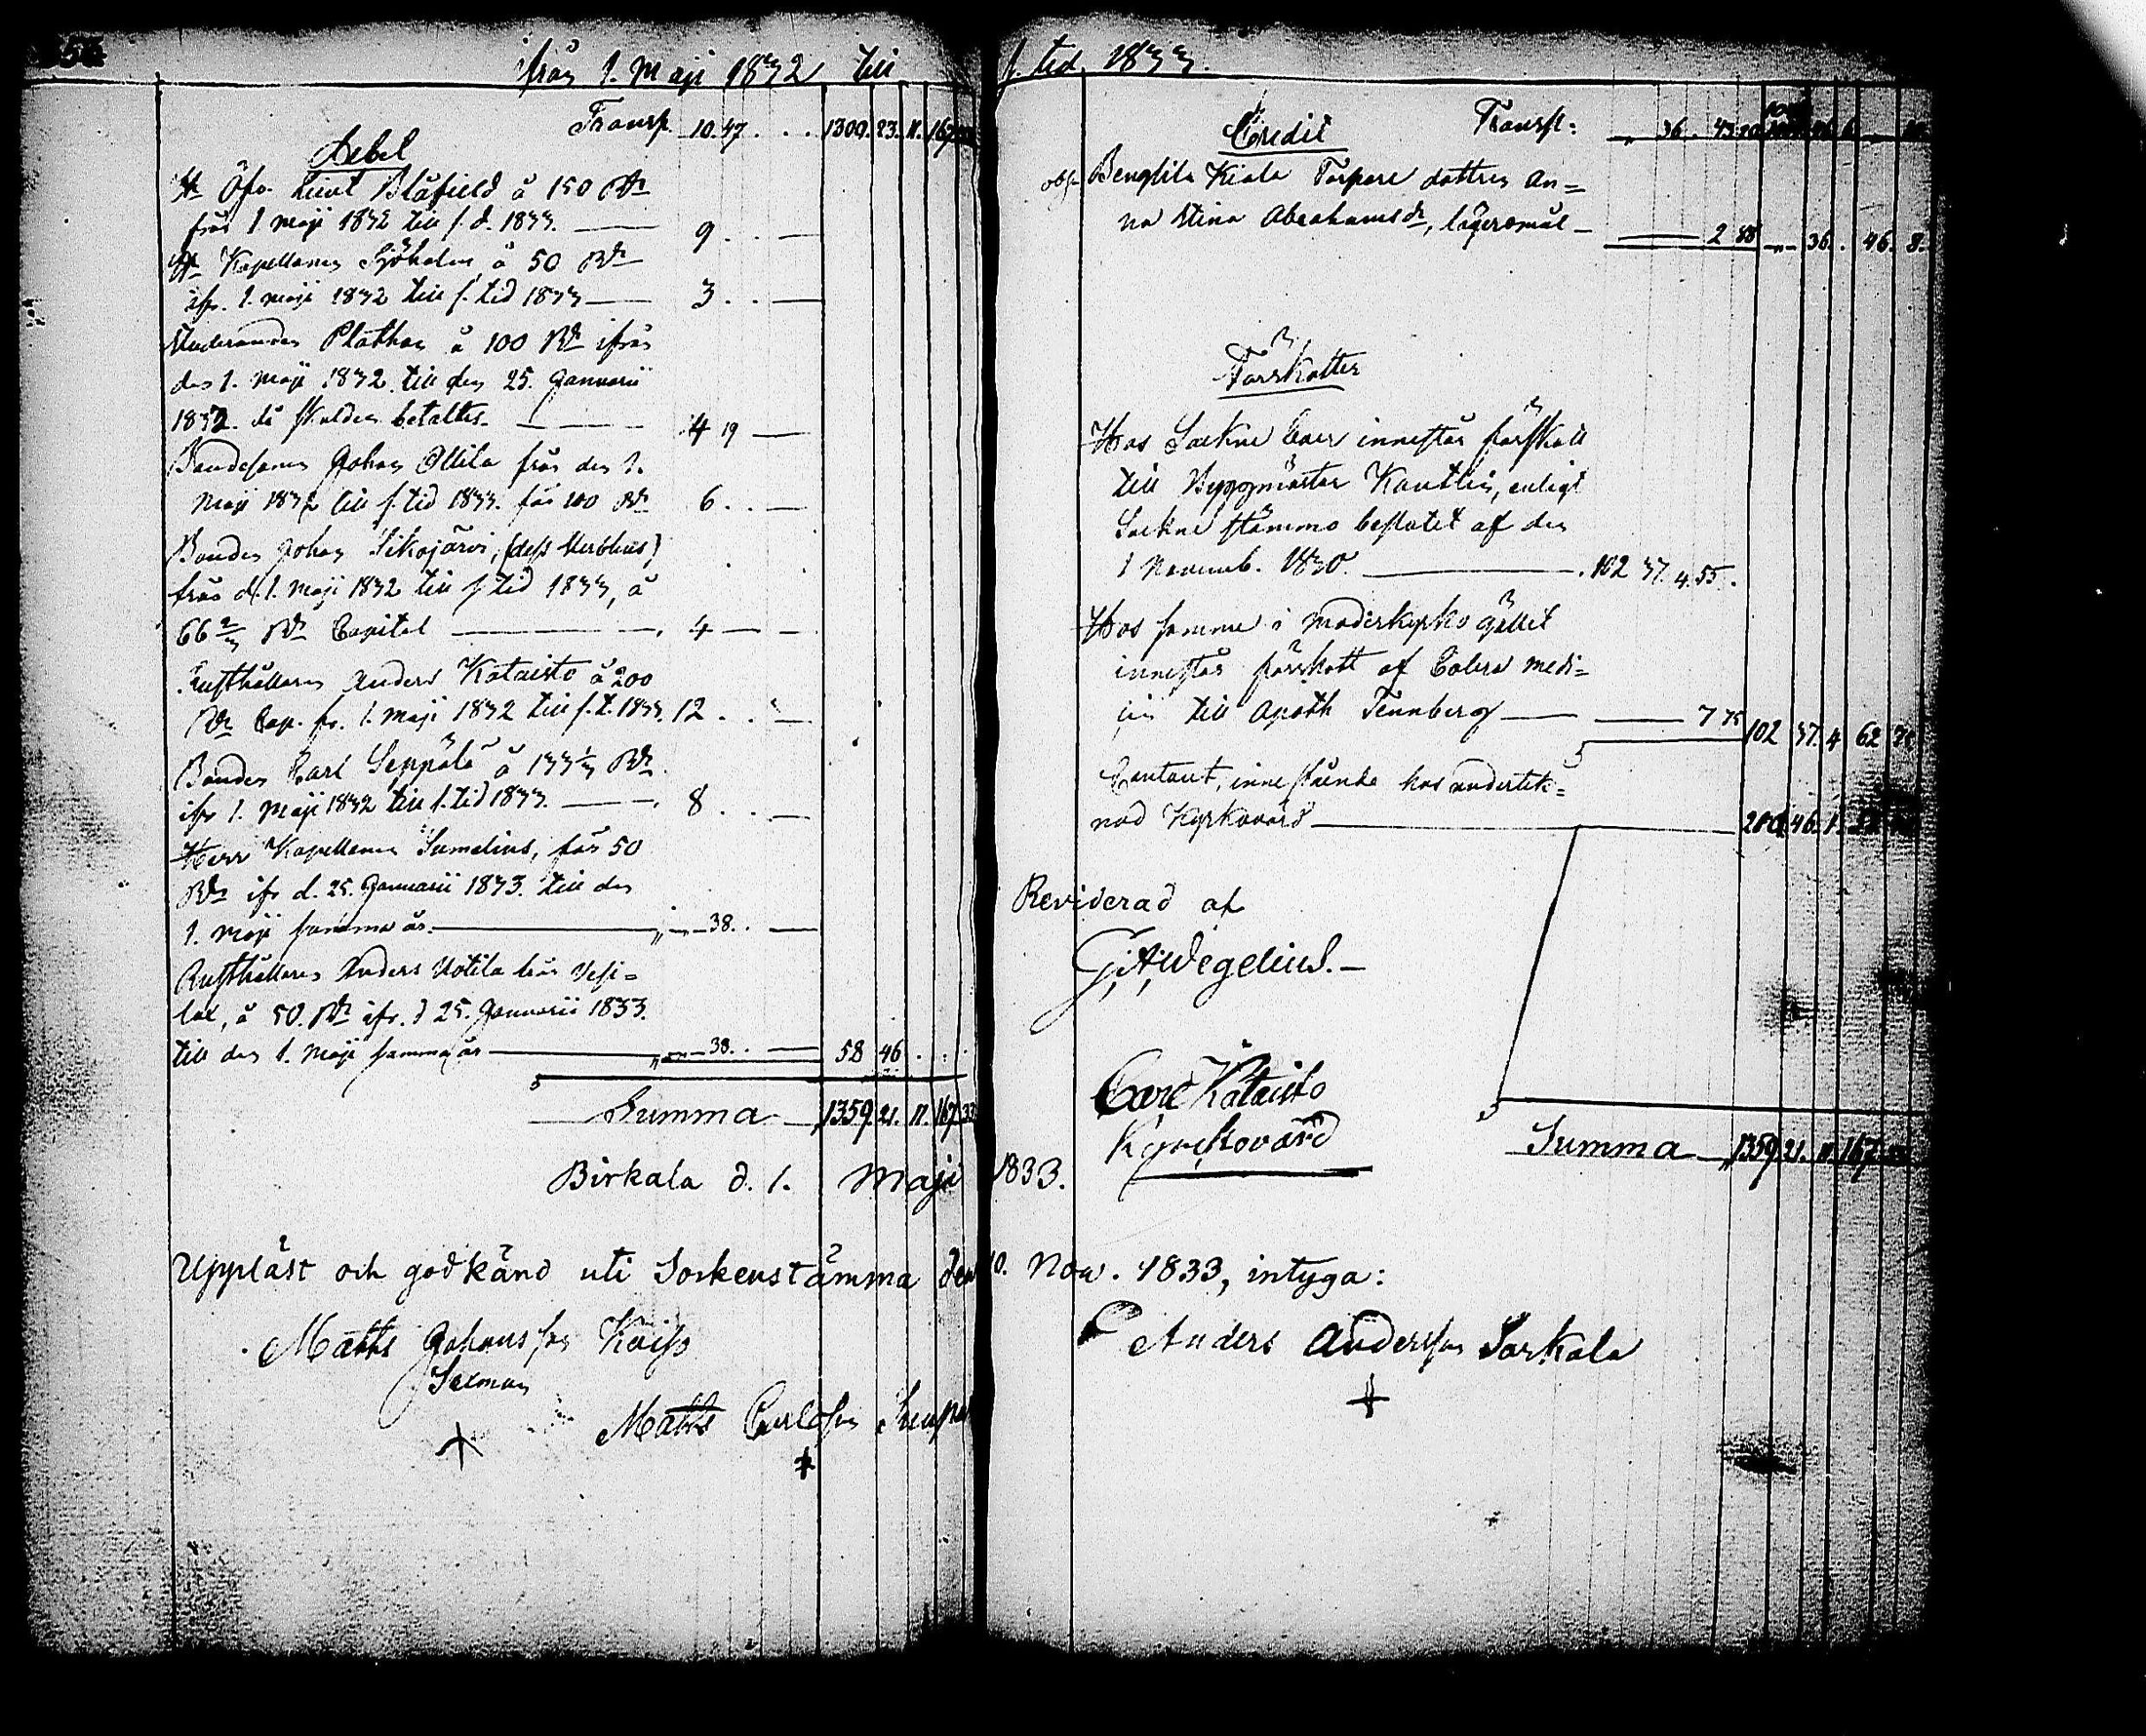 ifrån 1. Maji 1832 till
Transp. 10. 47 . . . 1300. 23. 11. 167
Debet
Hr Öfv. Lieut Blåfield à 150 Rdr
från 1 Maji 1832 till s. d. 1833. 9 . . —
Hr Kapellanen Sjöholm à 50 Rdr
ifr. 1. Maji 1832 till s. tid 1833 — 3 . . —
Studeranden Plathan à 100 Rdr ifrån
den 1. Maji 1832 till den 25. Januarii
1832. då skulden betaltes. — 4 19 —
Bondesonen Johan Ollila från den 1.
Maji 1832 till s. tid 1833. för 100 Rdr 6 . . —
Bonden Johan Sikojärvi, (dess Sterbhus)
från d. 1. Maji 1832 till s. tid 1833, à
66 2/3 Rdr Capital — 4 — —
Rusthållaren Anders Kataisto à 200
Rdr Cap. fr. 1. Maji 1832 till s. t. 1833. 12 . . —
Bonden Carl Seppälä à 133 1/3 Rdr
ifr 1. Maji 1832 till s. tid 1833. — 8 . . —
Herr Kapellanen Sumelius, för 50
Rdr ifr d. 25. Januarii 1833. till den
1. Maji samma år. — „ — 38. . —
Rusthållaren Anders Uotila från Vesi=
lax, à 50. Rdr ifr. d 25. Januarii 1833.
till den 1. Maji samma år — „ — 38. . — 58 46 . .
Summa — 1359. 21. 11. 167. 33
Birkala d. 1. Maji
Uppläst och godkänd uti Sockenstämma den
Matts Johansson Koiso
Sexman
Matts Carlsson
s. tid 1833.
Credit Transp: „ 36. 43 20
Bengtila Kiala Torpare dottren An=
na Stina Abrahamsdr, lägersmål — 2 88 „ — 36. . 46. 8.
Förskotter
Hos Sockne boer innestår förskott
till Byggmästar Kantlin, enligt
Sockne stämmo beslutet af den
1 Novemb. 1830. — 102 37. 4. 55.
Hos samme i moderkyrko gället
innestår förskott af Colera medi=
cin till Apoth Tennberg — 7 75 102 37. 4 62
Contant, innestående hos undertek=
nad Kyrkovärd — 46. 1.
Reviderad af
G. A. Wegelius. —
Carl Kataisto
Kyrckovärd
Summa — 1359 21. 11. 167.
1833.
10. Nov. 1833, intyga:
Anders Andersson Sorkala